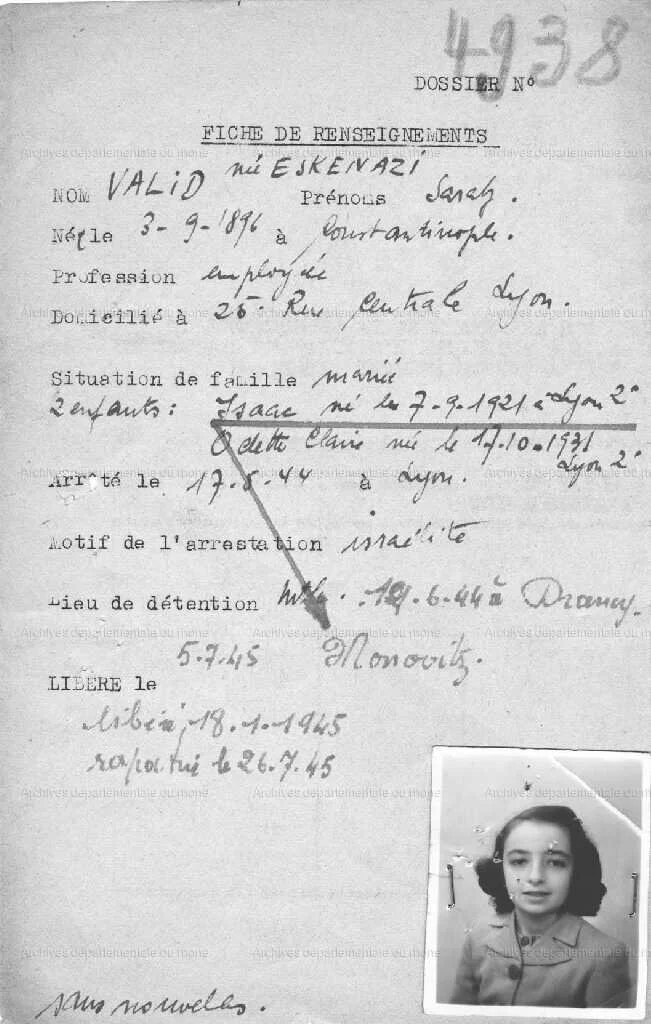 4938
DOSSIER N°
FICHE DE RENSEIGNEMENTS
NOM VALID née ESKENAZI Prénoms Sarah.
Né le 3-9-1896 à Constantinople.
Profession employée
Domicilié à 25. Rue Centrale Lyon.
Situation de famille marié
2 enfants : Isaac né le 7-9-1921 à Lyon 2°
Odette Claire née le 17.10.1931
Lyon 2°
Arrêté le 17.5.44 à Lyon.
Motif de l'arrestation israélite
Lieu de détention .6-44 à Drancy.
5.7.45 Monovitz.
LIBERE le
libéré, 18.1.1945
rapatrié le 26.7.45
sans nouvelles.
Archives départementale du rhône